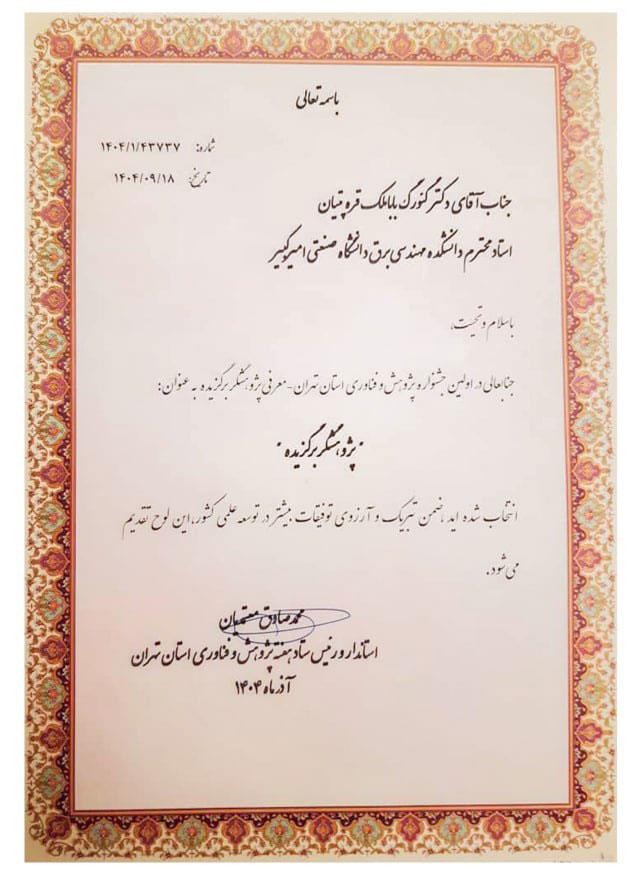 باسمه تعالی
شماره: ۱۴۰۴/۱/۴۳۷۳۷
تاریخ: ۱۴۰۴/۰۹/۱۸
جناب آقای دکتر گئورگ باباملک قره پتیان
استاد محترم دانشکده مهندسی برق دانشگاه صنعتی امیرکبیر
باسلام و تحیت،
جنابعالی در اولین جشنواره پژوهش و فناوری استان تهران-معرفی پژوهشگر برگزیده به عنوان:
"پژوهشگر برگزیده"
انتخاب شده اید، ضمن تبریک و آرزوی توفیقات بیشتر در توسعه علمی کشور، این لوح تقدیم
می شود.
محمد صادق معتمدیان
استاندار و رئیس ستاد هفته پژوهش و فناوری استان تهران
آذر ماه ۱۴۰۴